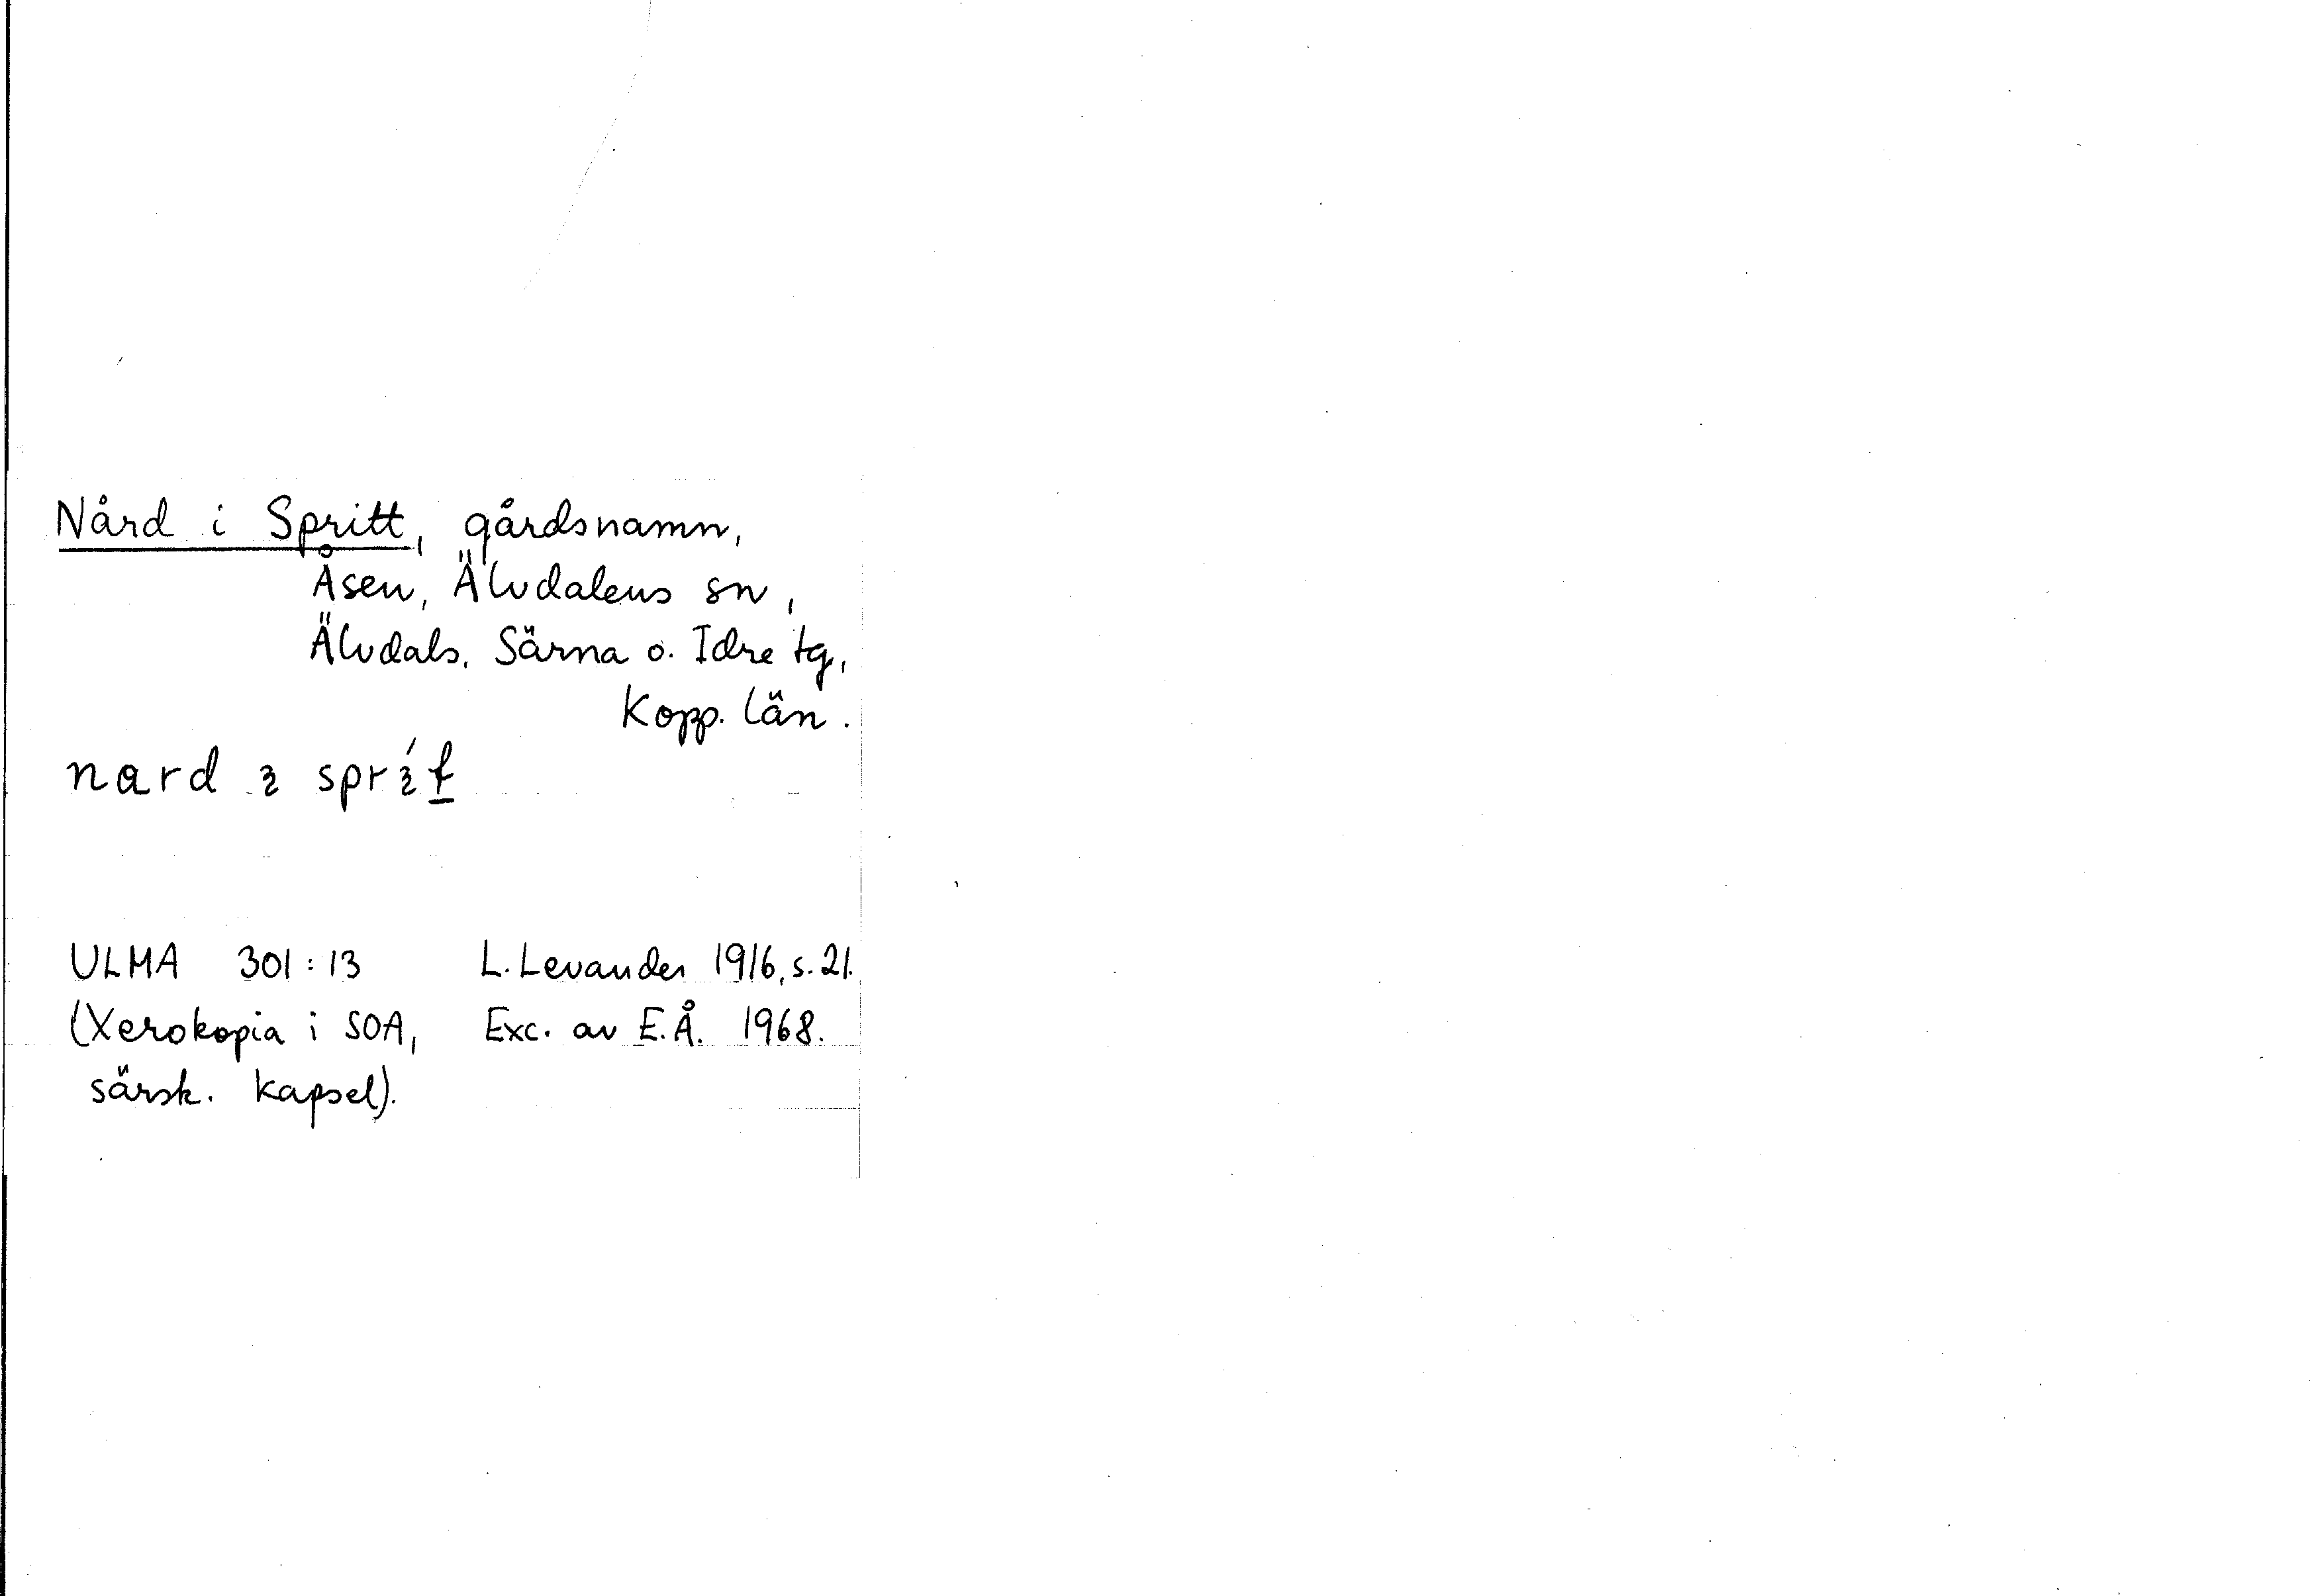 Nård i Spritt, gårdsnamn,
Åsen, Älvdalens sn,
Älvdals, Särna o. Idre tg,
Kopp. län.
nard ɿ sprɿ́t
ULMA 301:13 L. Levander 1916, s. 21.
(Xerokopia i SOA, Exc. av E.Å. 1968.
särsk. kapsel).